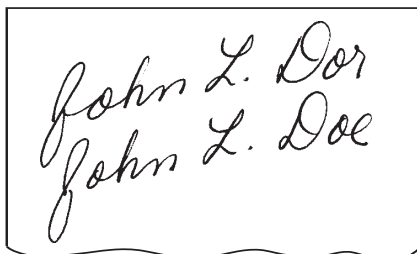 John L. Dor
John L. Doe